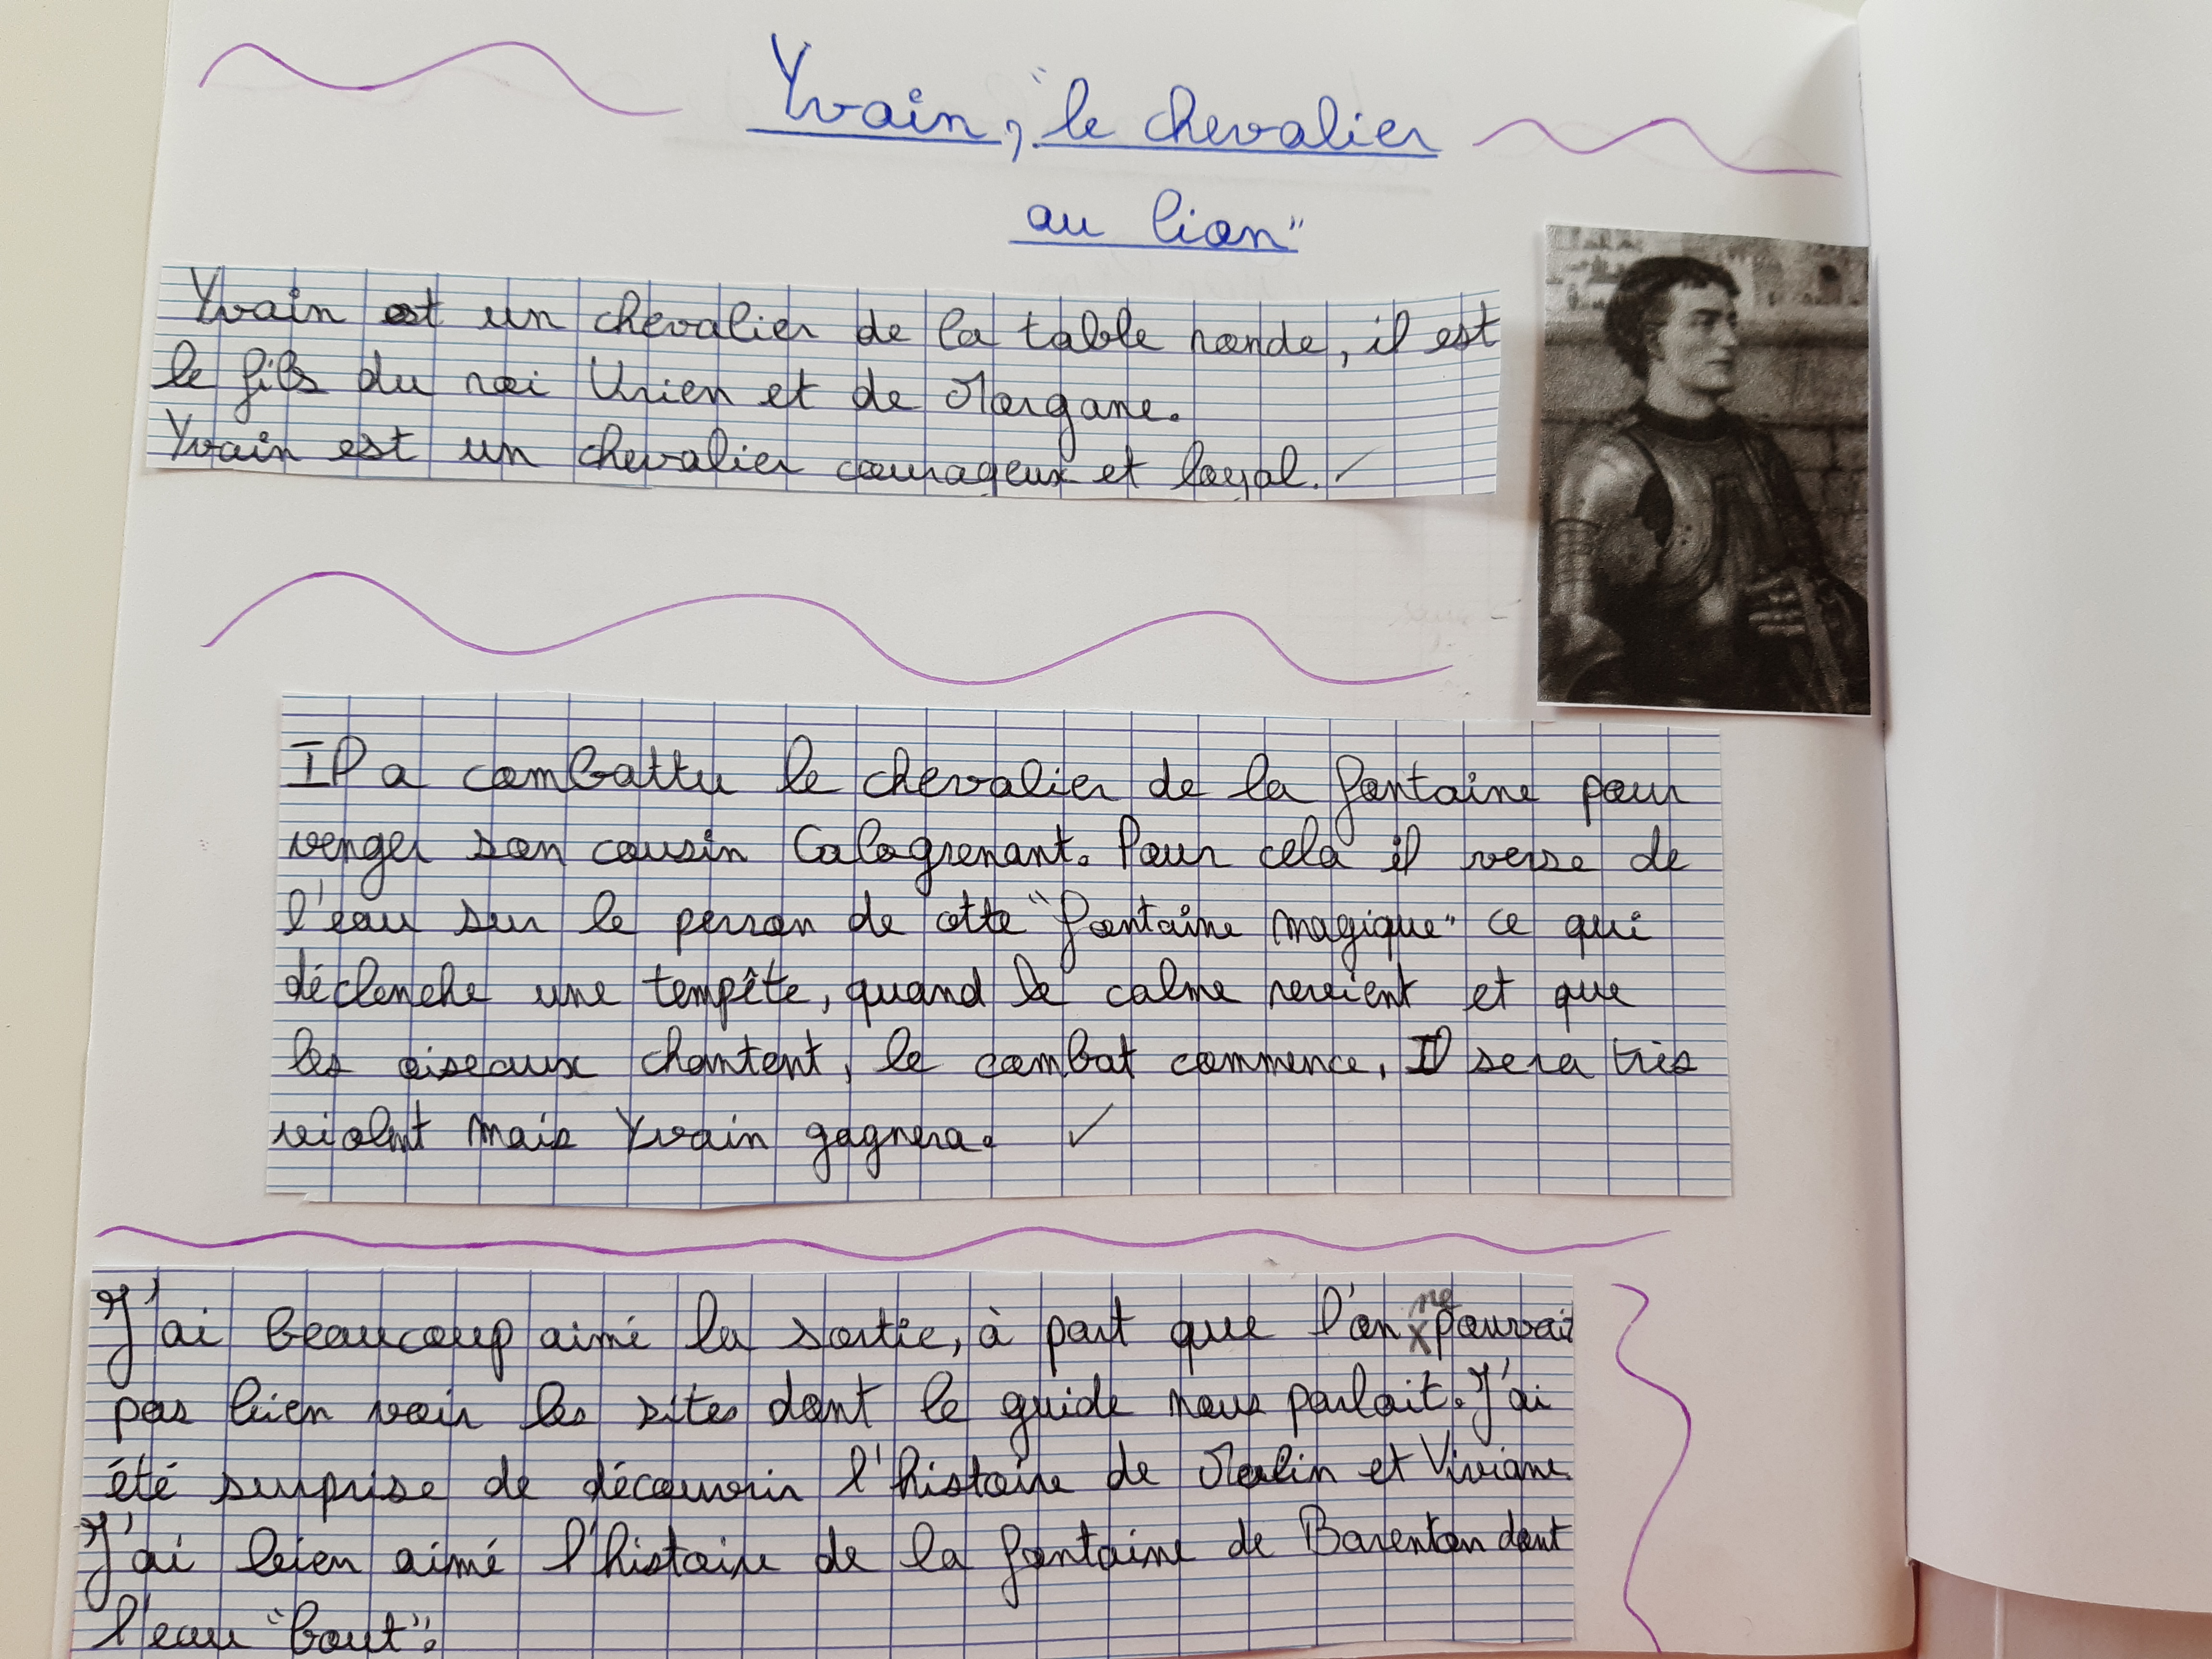 Yvain, "le chevalier
au lion"
Yvain est un chevalier de la table ronde, il est
le fils du roi Urien et de Morgane.
Yvain est un chevalier courageux et loyal.
Il a combattu le chevalier de la fontaine pour
venger son cousin Calogrenant. Pour cela il verse de
l'eau sur le perron de cette "fontaine magique" ce qui
déclenche une tempête, quand le calme revient et que
les oiseaux chantent, le combat commence. Il sera très
violent mais Yvain gagnera.
J'ai beaucoup aimé la sortie, à part que l'on ne pouvait
pas bien voir les sites dont le guide nous parlait. J'ai
été surprise de découvrir l'histoire de Merlin et Viviane
J'ai bien aimé l'histoire de la fontaine de Barenton dont
l'eau "bout".